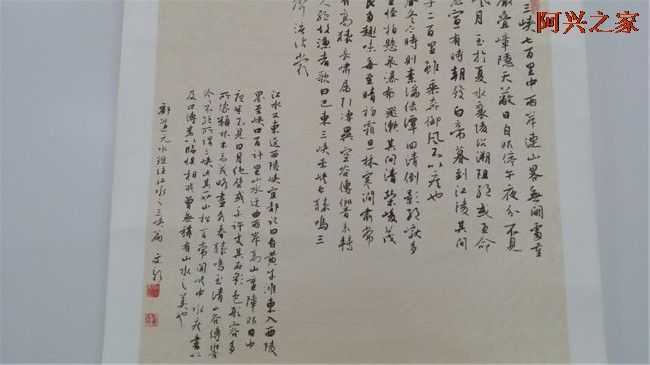 阿兴之家
三峡七百里中两岸连山略无阙处重
岩叠嶂隐天蔽日自非停午夜分不见
曦月至于夏水襄陵沿溯阻绝或王命
急宣有时朝发白帝暮到江陵其间
千二百里虽乘奔御风不以疾也
春冬之时则素湍绿潭回清倒影绝巘多
生怪柏悬泉瀑布飞漱其间清荣峻茂
良多趣味每至晴初霜旦林寒涧肃常
有高猿长啸属引凄异空谷传响哀转
久绝故渔者歌曰巴东三峡巫峡长猿鸣三
声泪沾裳
江水又东迳西陵峡宜都记曰自黄牛滩东入西陵
界至峡口百许里山水迂曲而两岸高山重障非日中
夜半不见日月绝壁或千许丈其石彩色形容多
所像类林木高茂猿鸣至清山谷传响
泠不绝所谓三峡此其一也山松言常闻峡中水疾书以
及口传悉以临惧相戒曾无称有山水之美也
郦道元水经注江水之三峡篇